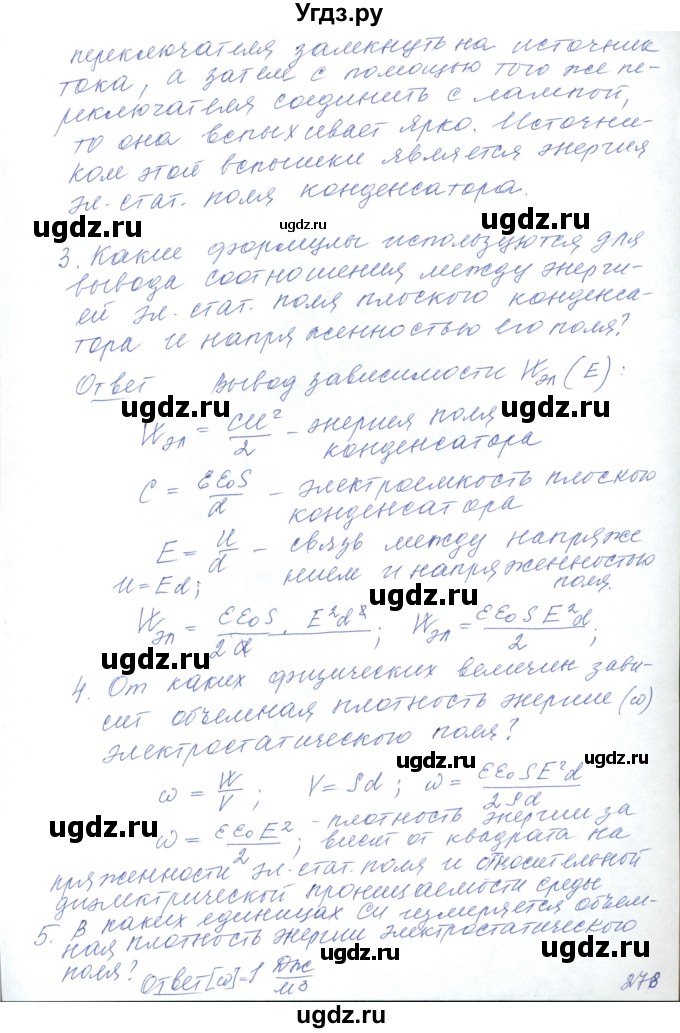 Угдз.ру
переключателя замкнуть на источник
тока, а затем с помощью того же пе-
реключателя соединить с лампой,
то она вспыхивает ярко. Источни-
ком этой вспышки является энергия
эл. стат. поля конденсатора.
ugdz.ru ugdz.ru ugdz.ru
3. Какие формулы используются для
вывода соотношения между энерги-
ей эл. стат. поля плоского конденса-
тора и напряженностью его поля?
Ответ Вывод зависимости Wэл (E):
ugdz.ru ugdz.ru
Wэл = CU²/2 – энергия поля
конденсатора
C = εε₀S/d – электроемкость плоского
конденсатора
ugdz.ru ugdz.ru
E = U/d – связь между напряже
U = Ed; нием и напряженностью
поля.
ugdz.ru ugdz.ru
Wэл = εε₀S · E²d²/2d; Wэл = εε₀SE²d/2;
ugdz.ru
4. От каких физических величин зави-
сит объемная плотность энергии (ω)
электростатического поля?
ugdz.ru ugdz.ru
ω = W/V; V = Sd; ω = εε₀SE²d/2Sd
ugdz.ru ugdz.ru
ω = εε₀E²/2; – плотность энергии за
висит от квадрата на
пряженности эл. стат. поля и относительной
диэлектрической проницаемости среды
5. В каких единицах Си измеряется объем-
ная плотность энергии электростатического
поля? Ответ [ω] = 1 Дж/м3
ugdz.ru ugdz.ru
278